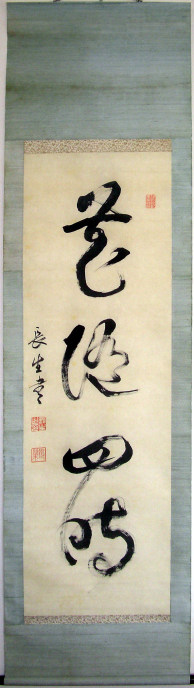 花隨四時
長生書